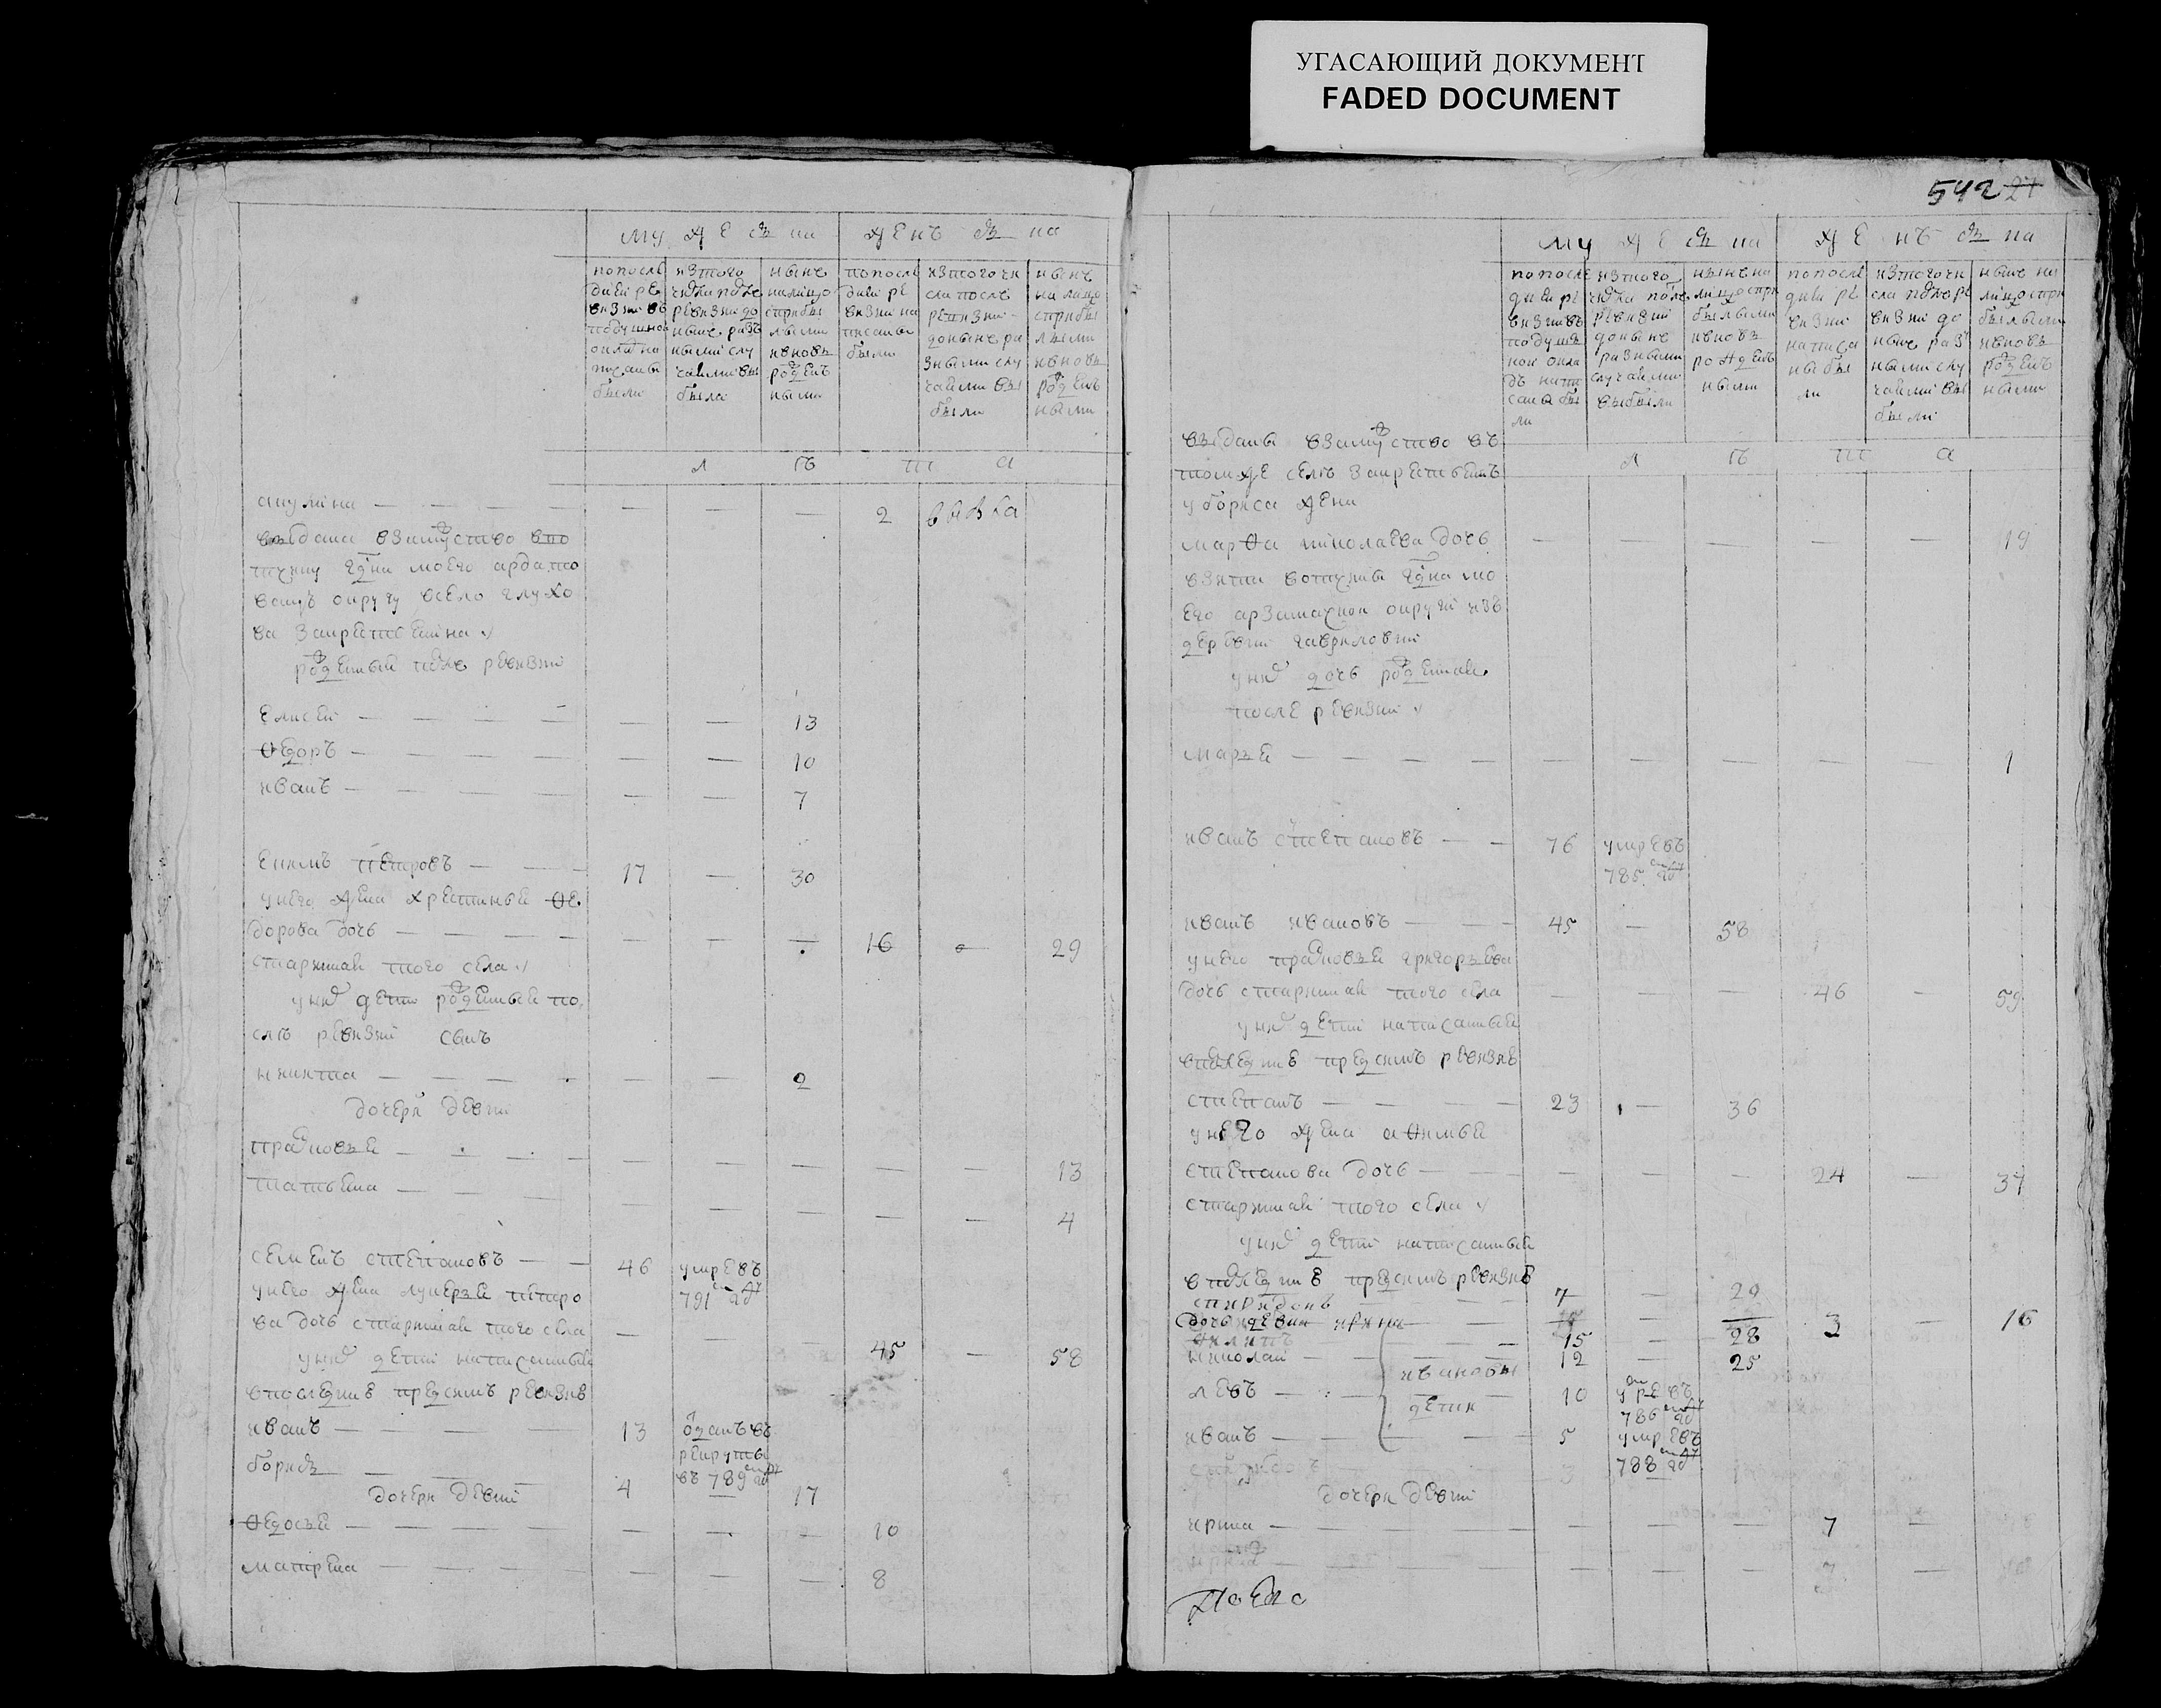 УГАСАЮЩИЙ ДОКУМЕНТ
FADED DOCUMENT
542 27
мужеска
женска
по после
дней ре
визии въ
подушной
оклад на
писаны
были
изтого
числа после
ревизии до
ныне разъ
ными слу
чаями вы
была
ныне
налицо
с прибы
лыми
и вновь
рожденъ
ными
по после
дней ре
визии на
писаны
были
изтого чи
сла после
ревизии
доныне ра
зными слу
чаями вы
были
ныне
на лицо
с прибы
лыми
и вновь
рожденъ
ными
лѣта
акулина — — — — — — 2 выбыла
выдана взамужство вво
тчину г̃дна моего ардато
вскую округу всело глухо
ва закрестьянина
рожденный после ревизии
елисей — — — — — — 13
ѳедоръ — — — — — 10
иванъ — — — — — — 7
екимъ петровъ — — — 17 — 30
унего жена христинья ѳе
дорова дочь — — — — — — — 16 — 29
старинная того села
у них дети рожденныя по
слѣ ревизии сынъ
никита — — — — — — 2
дочери девки
прасковья — — — — — — — — — 13
татьяна — — — — — — — — 4
семенъ степановъ — — 46 умре въ
791 году
унего жена лукерья петро
ва дочь старинная того села — — — 45 — 58
у них дети написанныя
впоследние пред симъ ревизие
иванъ — — — — 13 отданъ въ
рекруты
въ 789 году
борисъ — — — 4 — 17
дочери девки
ѳедосья — — — — — — — 10
матрена — — — — — — — 8
мужеска
женска
по после
дней ре
визии въ
подуш
ной окла
дъ напи
саны бы
ли
изтого
числа после
ревизии
доныне
разными
случаями
выбыли
ныне на
лицо с при
былыми
и вновь
рожденъ
ными
по после
дней ре
визии
написа
ны бы
ли
изтого чи
сла после ре
визии до
ныне раз
ными слу
чаями вы
были
ныне на
лицо с при
былыми
и вновь
рожденъ
ными
лѣта
выданы взамужство въ
том же селѣ закрестьянъ
у бориса жена
марѳа николаева дочь — — — — — 19
взята вотчины г̃дна мо
его арзамаской округи изъ
деревни гавриловки
у них дочь рожденная
после ревизии
марья — — — — — — — — — 1
иванъ степановъ — — 76 умре въ
785 году
иванъ ивановъ — — — 45 — 58
унего прасковья григорьева
дочь старинная того села — — — 46 — 59
у них дети написанныя
впоследние пред симъ ревизие
степанъ — — — — 23 — 36
унего жена аѳимья
степанова дочь — — — — — 24 — 37
старинная того села
у них дети написанныя
впоследние пред симъ ревизие
спиридонъ — — 7 — 29
дочь девка ирина — — 3 — 16
ѳилипъ — 15 — 28
николай — — 12 — 25
левъ — — 10 умре въ
786 году
ивановы
дети
иванъ — — — 5 умре въ
788 году
3
дочери девки
ирина — — — — — — — 7 —
7